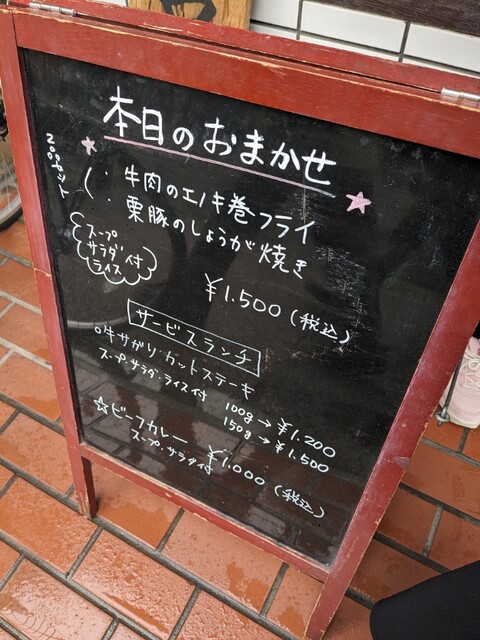 本日のおまかせ
・牛肉のエノキ巻フライ
・栗豚のしょうが焼き
スープ
サラダ付
ライス
¥1.500(税込)
サービスランチ
○牛サガリカットステーキ
スープ・サラダ・ライス付
100g→¥1.200
150g→¥1.500
☆ビーフカレー
スープ・サラダ付
¥1.000(税込)